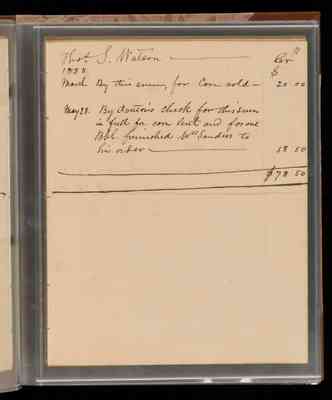 Thos. S. Watson Cr.
1858. $
March By this sum, for Corn sold 20 00
May 28. By Overton's check for this sum
in full for corn lent and for one
Bbl. furnished Wm Sanders to
his order 58 50
$78 50